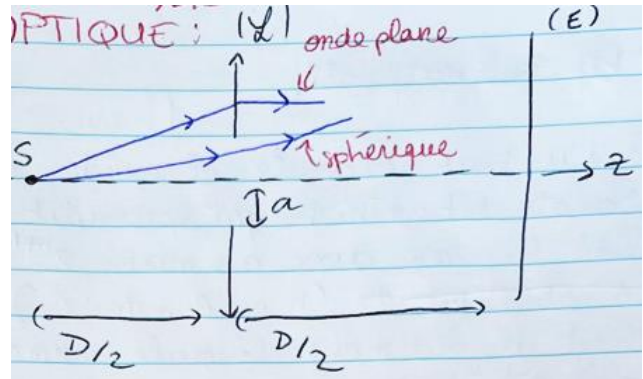 OPTIQUE: |L|
(E)
onde plane
S
sphérique
z
a
D/2
D/2